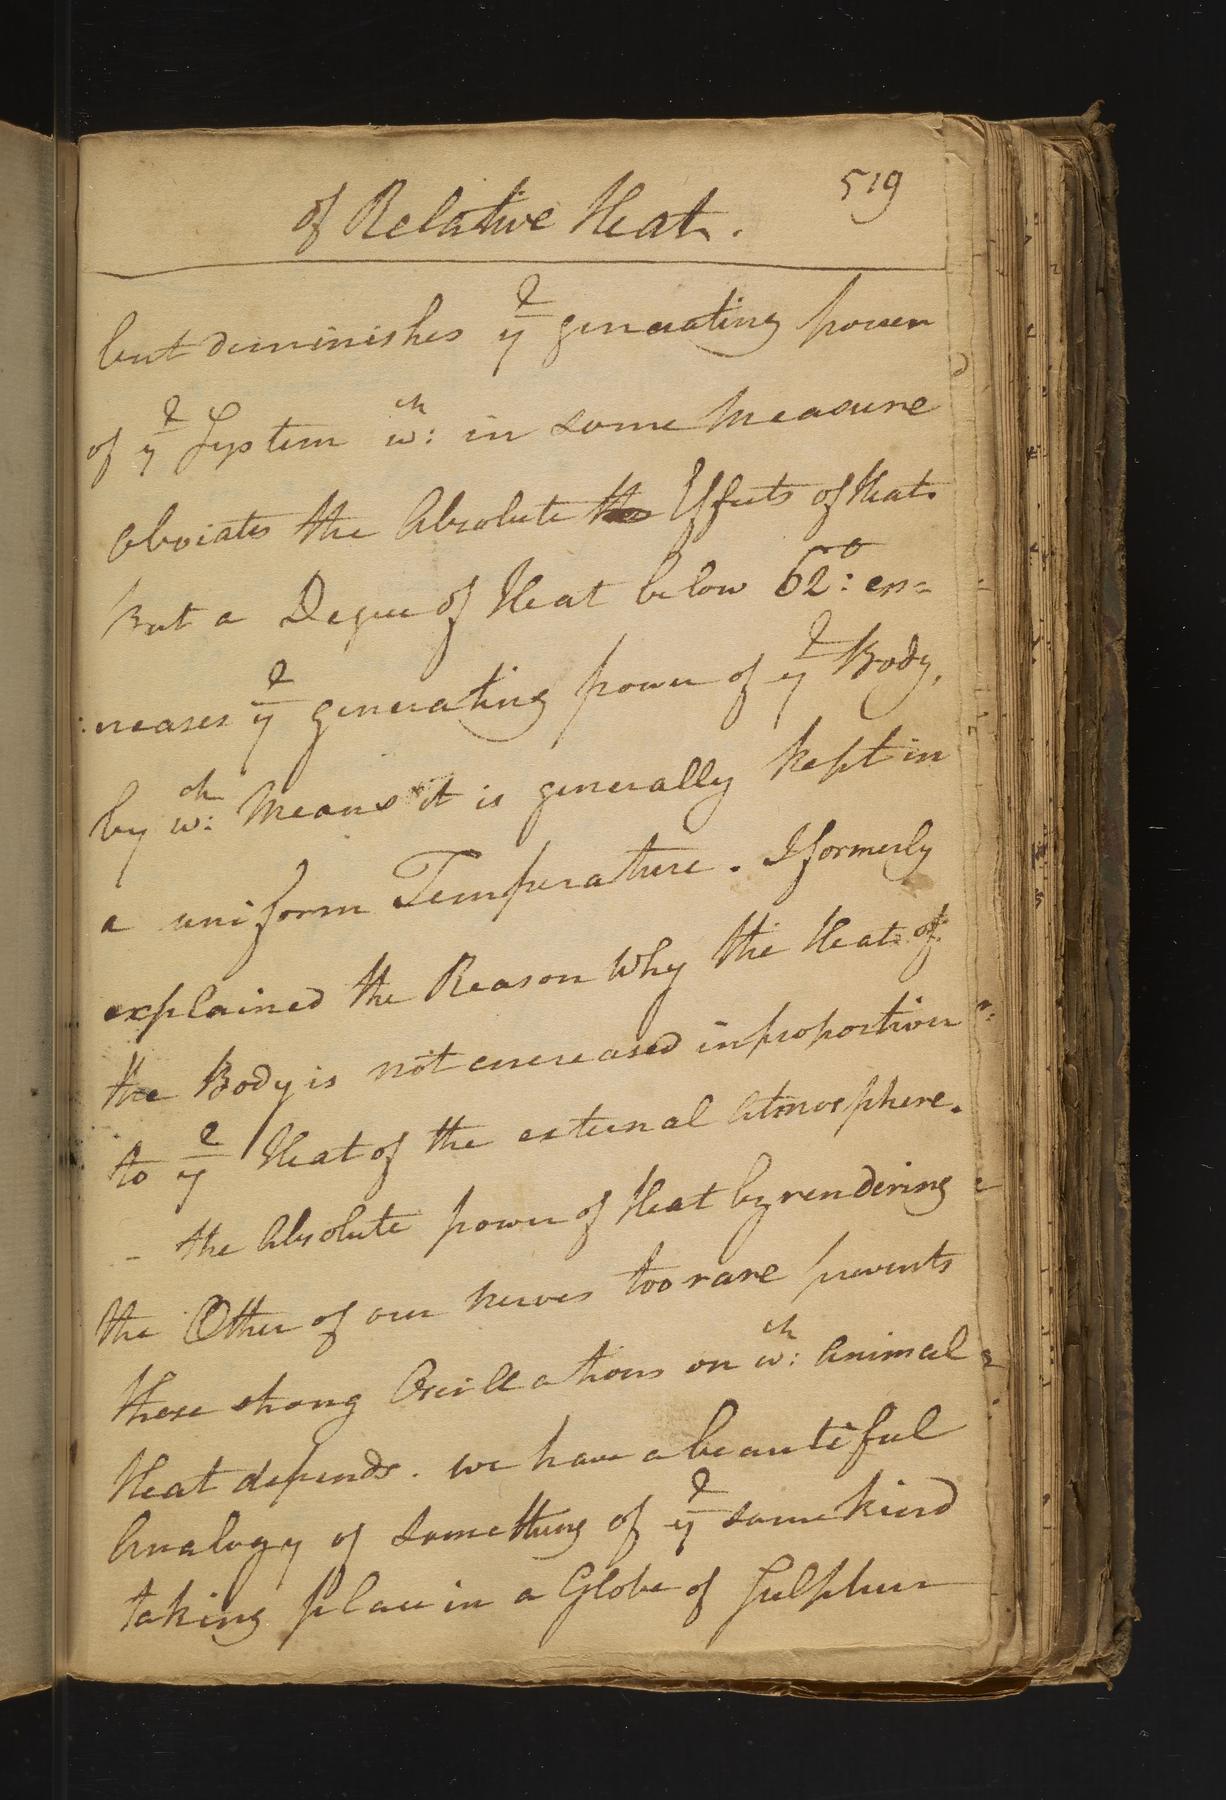 of Relative Heat. 519
but diminishes ye generating power
of ye System wch: in some Measure
obviates the Absolute Effects of Heat.
But a Degree of Heat below 62°: en=
:creases ye generating power of ye Body,
by wch: Means it is generally kept in
a uniform Temperature. I formerly
explained the Reason Why the Heat of
the Body is not encreased in proportion
to ye Heat of the external Atmosphere.
- the Absolute power of Heat by rendering
the Other of our nerves too rare prevents
those strong Oscillations on wch: Animal
Heat depends. we have a beautiful
Analogy of something of ye same kind
taking place in a Globe of Sulphur